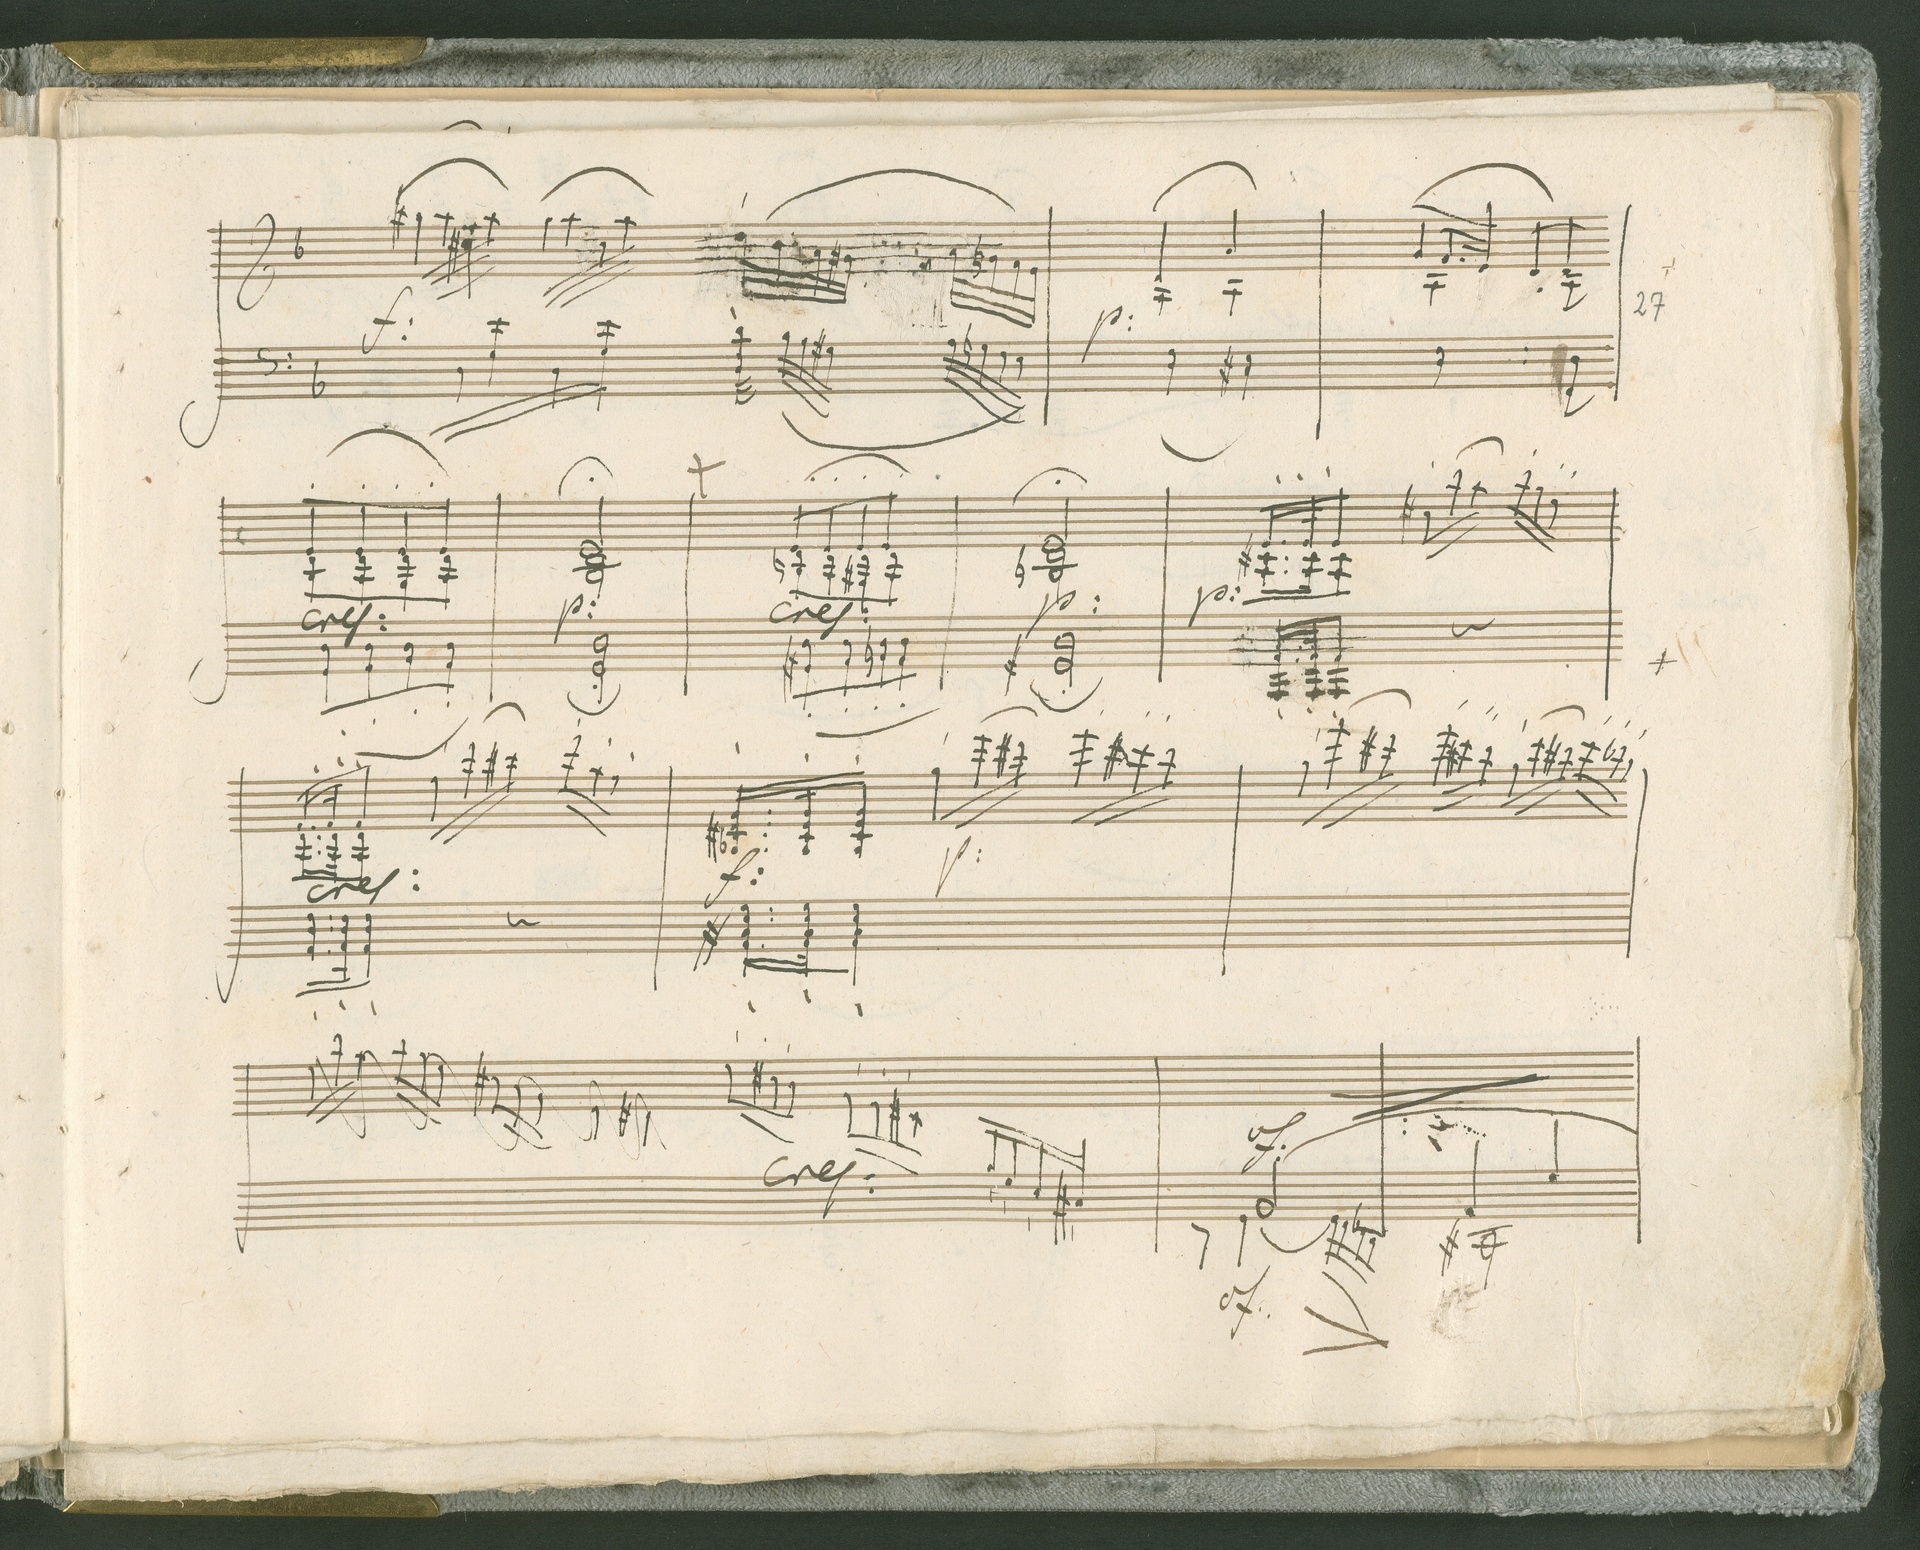 f:
p:
27
cres: p: cres: p: p:
cres: f: p:
sf.
cres:
sf.